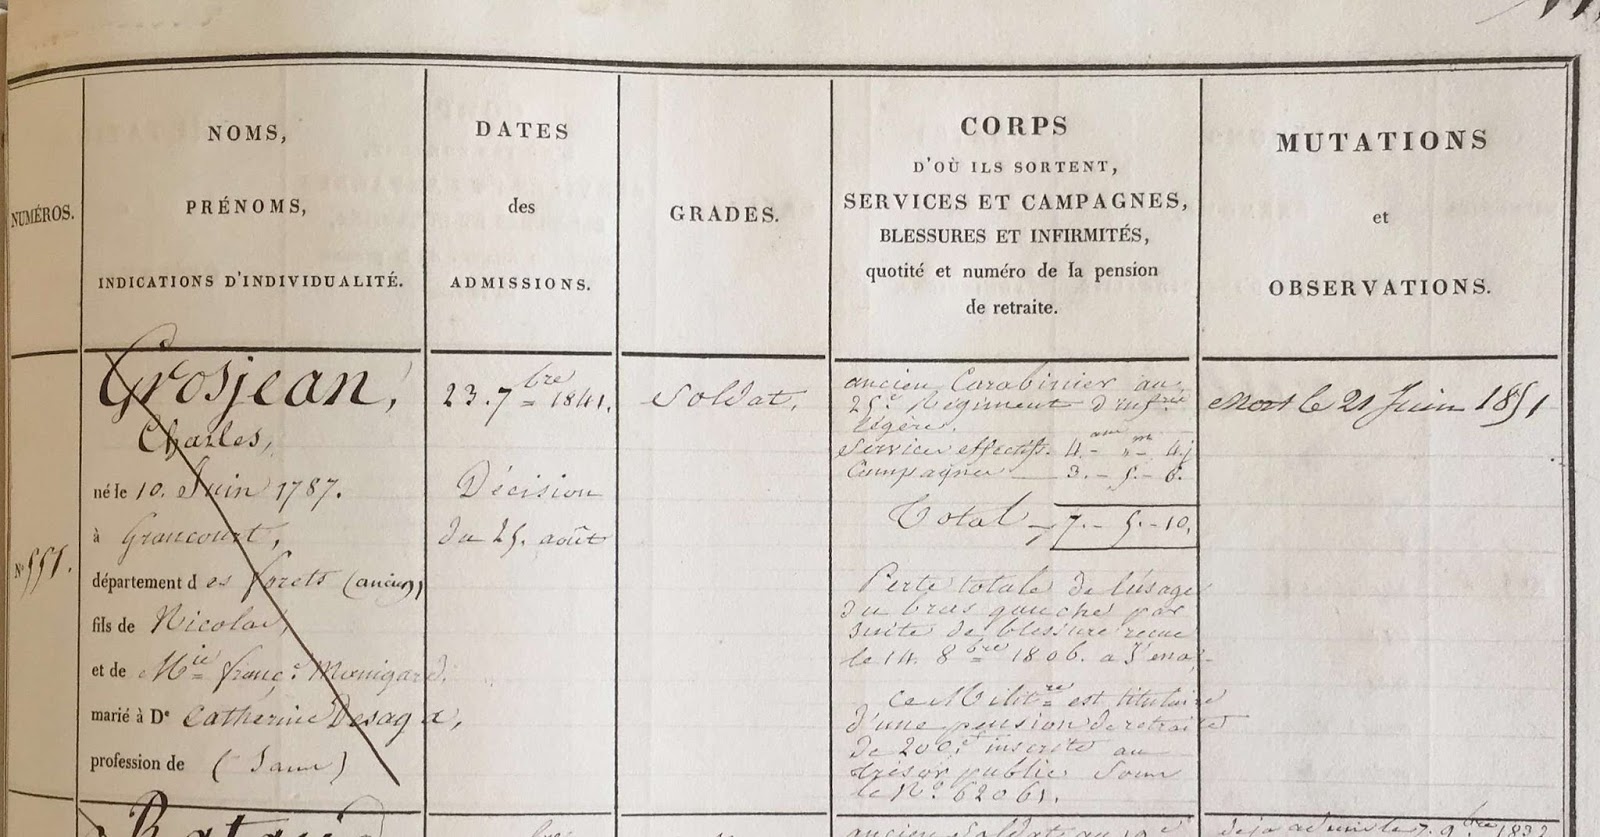 NUMÉROS.
NOMS,
PRÉNOMS,
INDICATIONS D'INDIVIDUALITÉ.
DATES
des
ADMISSIONS.
GRADES.
CORPS
D'OÙ ILS SORTENT,
SERVICES ET CAMPAGNES,
BLESSURES ET INFIRMITÉS,
quotité et numéro de la pension
de retraite.
MUTATIONS
et
OBSERVATIONS.
No 551.
Grosjean,
Charles,
né le 10. Juin 1787.
à Grancourt,
département des forets (ancien)
fils de Nicolas,
et de Mie franç.e Monigard.
marié à De Catherine Desaga,
profession de (Sans)
23. 7bre 1841.
Décision
du 25. août
Soldat.
ancien Carabinier au
25e Régiment d'infrie
légère.
Services effectifs. 4.ans - " m - 4.j
Campagnes 3. - 5. - 6.
Total 7. - 5. - 10.
Perte totale de l'usage
du bras gauche par
suite de blessure reçue
le 14. 8bre 1806. a Jena.
Ce Militre est titulaire
d'une pension de retraite
de 200.f inscrite au
trésor public sous
le No. 62061.
Mort le 21 Juin 1851
ancien Soldat au 19e
déjà admis le 7. 9bre 1832